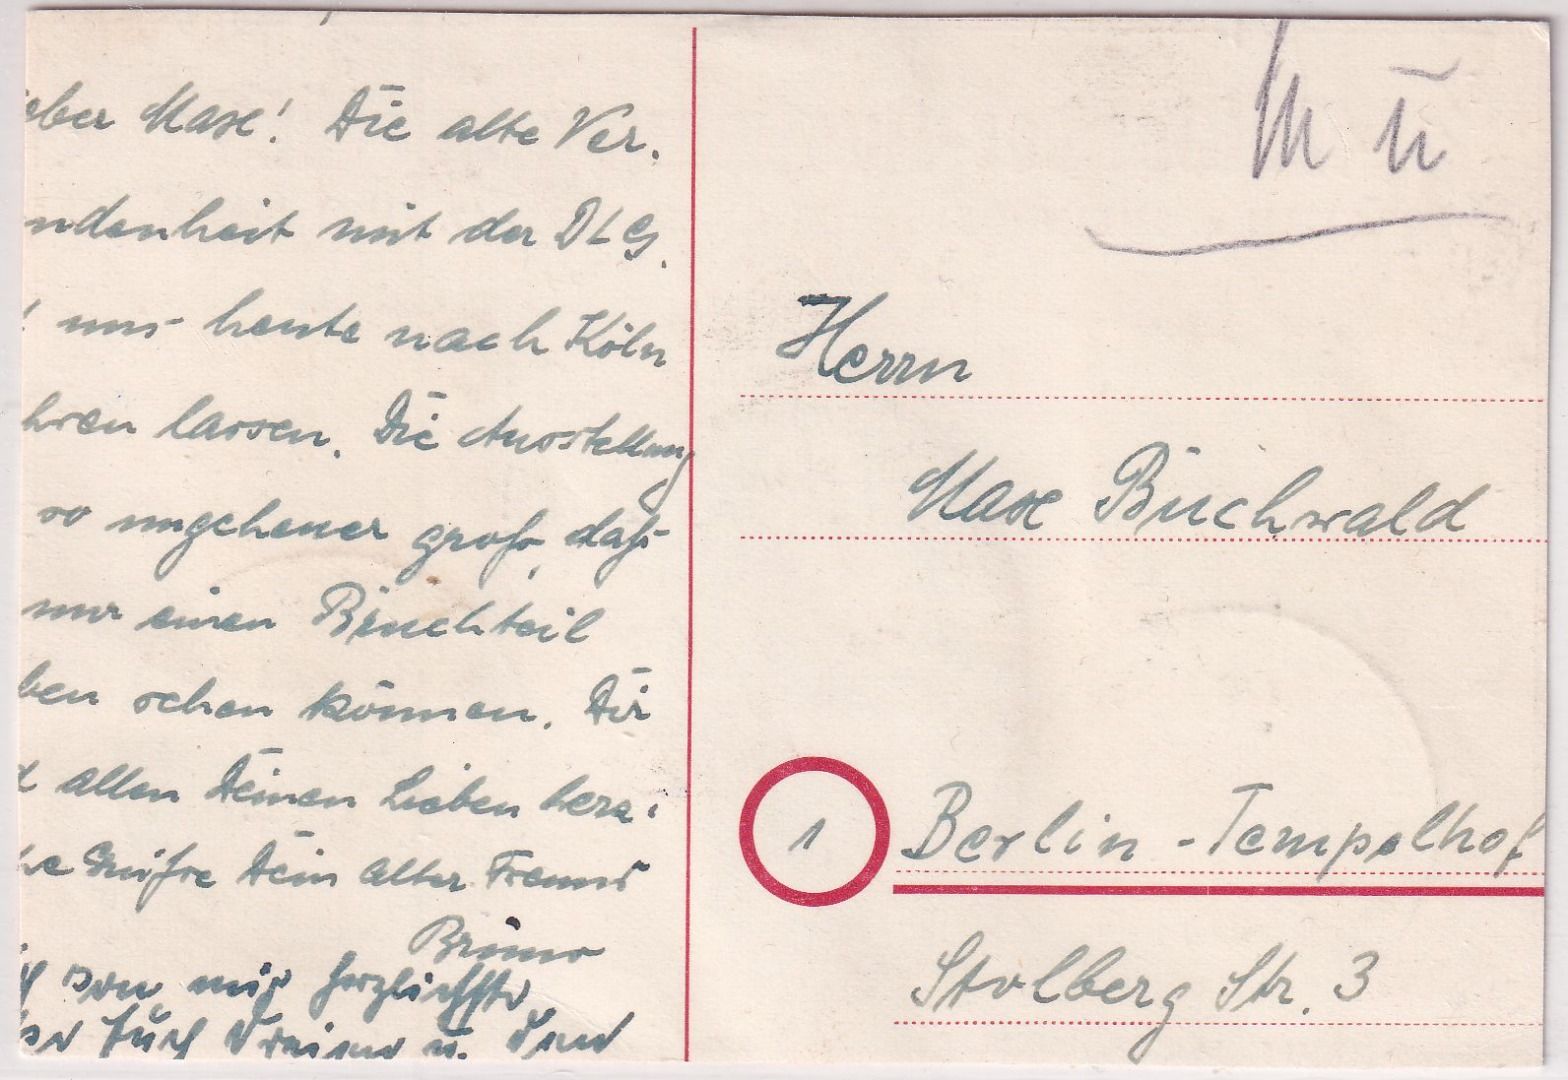 eber Max! Die alte Ver-
ndenheit mit der DLG.
uns heute nach Köln
hren lassen. Die Ausstellung
so ungeheuer groß, daß
nur einen Bruchteil
ben sehen können. Dir
d allen Deinen Lieben herz-
he Grüße Dein alter Freund
Bruno
von mir herzlichste
Euch u.
M ü
Herrn
Max Buchwald
1 Berlin-Tempelhof
Stolberg Str. 3